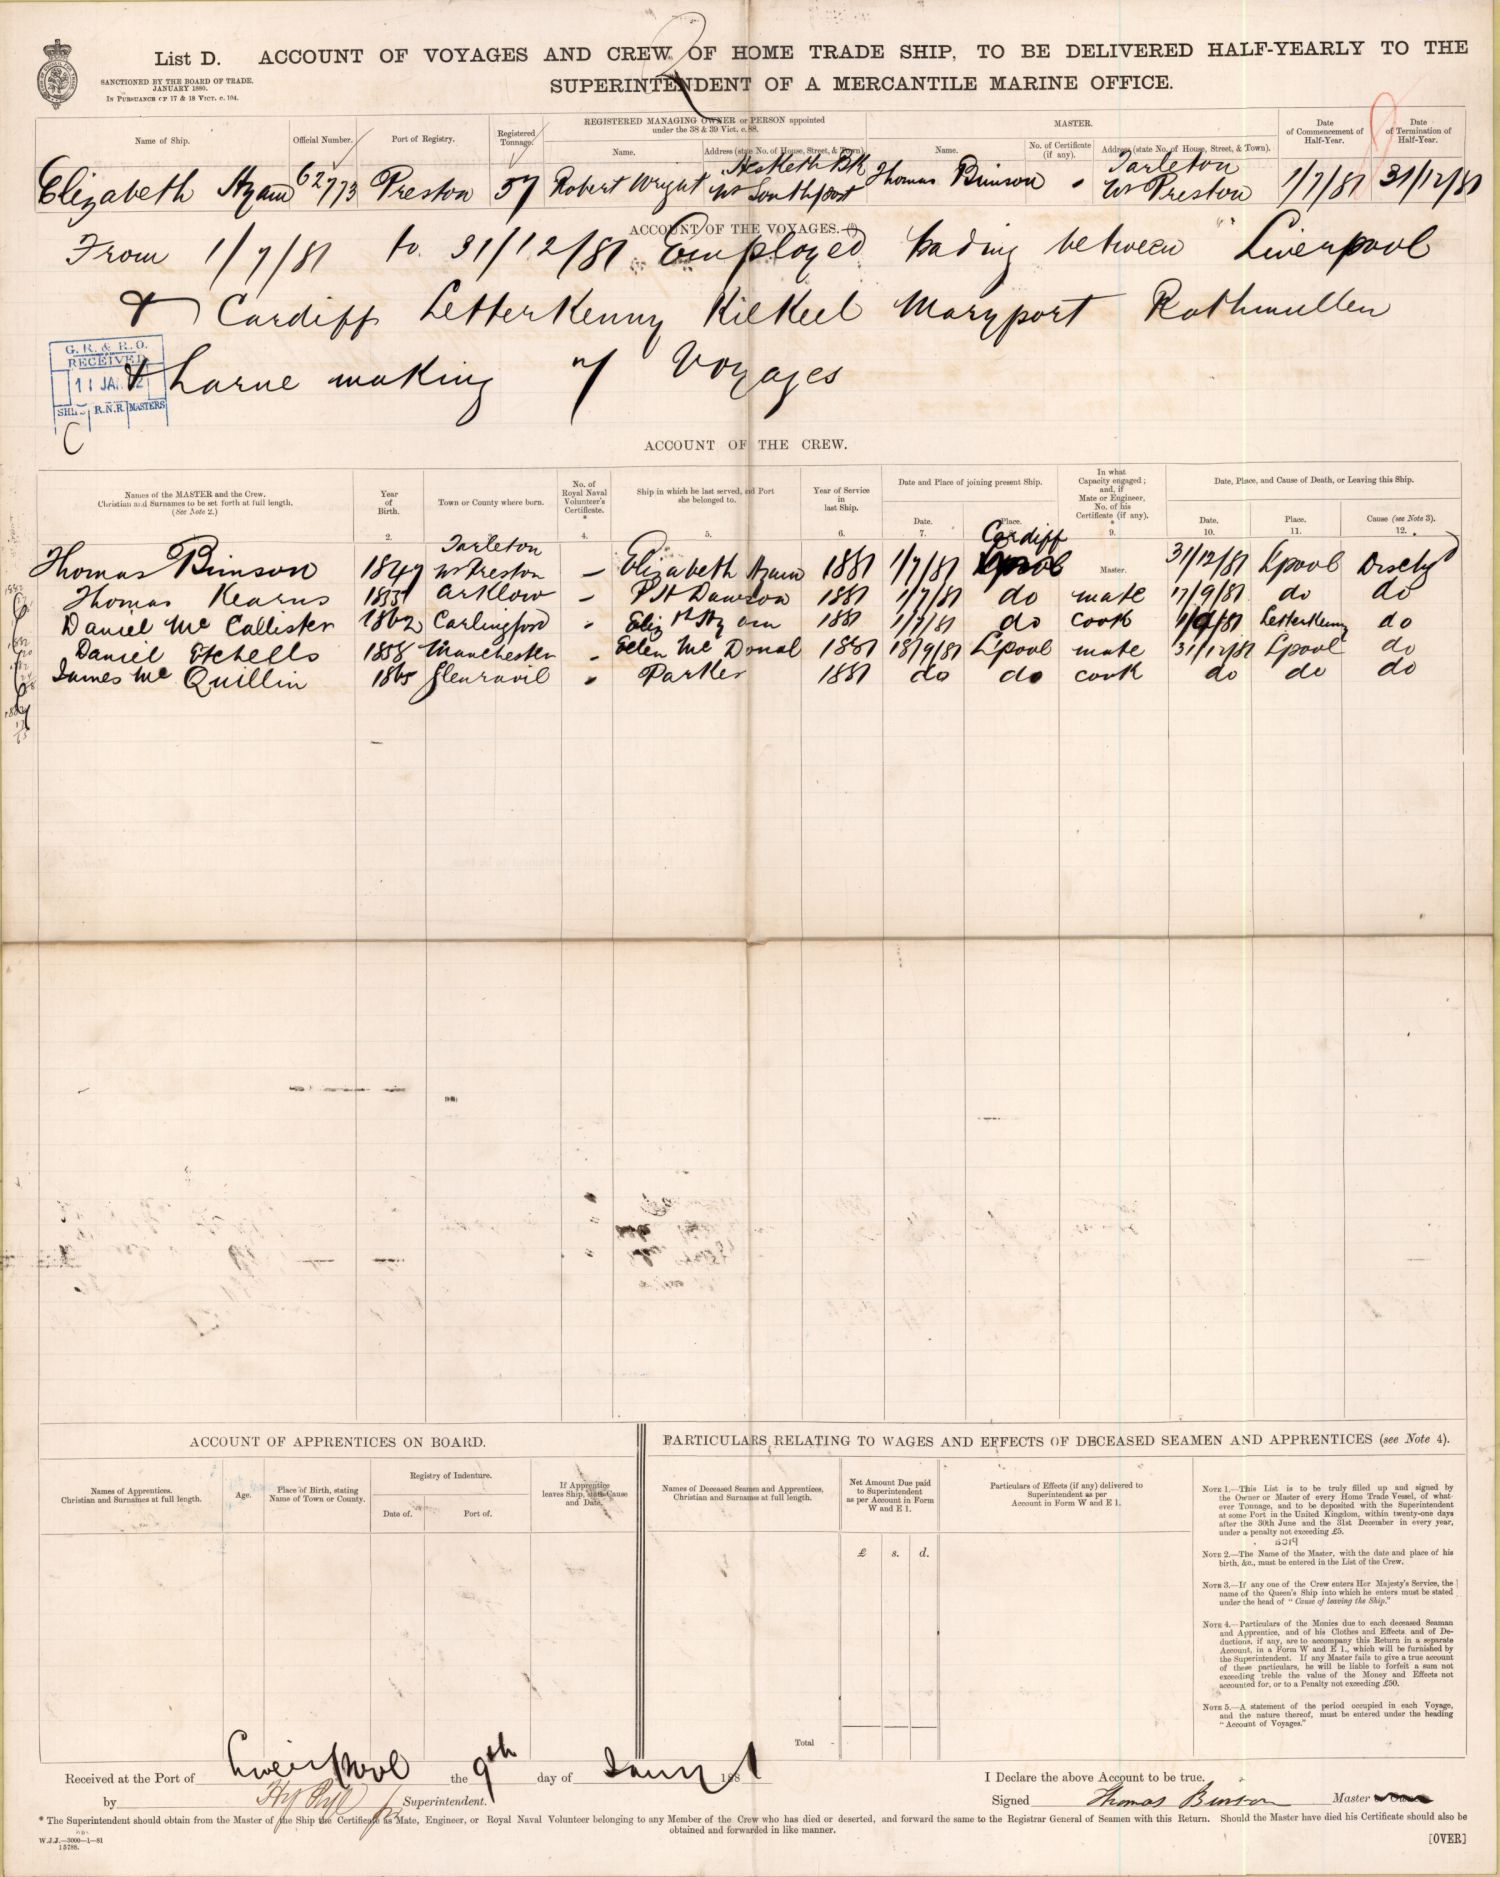 List D. ACCOUNT OF VOYAGES AND CREW OF HOME TRADE SHIP, TO BE DELIVERED HALF-YEARLY TO THE
SUPERINTENDENT OF A MERCANTILE MARINE OFFICE.
SANCTIONED BY THE BOARD OF TRADE.
JANUARY 1880.
IN PURSUANCE OF 17 & 18 VICT. c. 104.
REGISTERED MANAGING OWNER or PERSON appointed under the 38 & 39 Vict. c. 88.
MASTER.
Name of Ship. Official Number. Port of Registry. Registered Tonnage. Name. Address (state No. of House, Street, & Town). Name. No. of Certificate (if any). Address (state No. of House, Street, & Town). Date of Commencement of Half-Year. Date of Termination of Half-Year.
Hesketh BK Tarleton
Elizabeth Hyam 62773 Preston 57 Robert Wright Nr Southport Thomas Bimson " Nr Preston 1/7/81 31/12/81
ACCOUNT OF THE VOYAGES.
From 1/7/81 to 31/12/81 Employed trading between Liverpool
& Cardiff Letterkenny Kilkeel Maryport Rathmullen
& Larne making 7 Voyages
G. R. & R. O.
RECEIVED
11 JAN
R.N.R MASTERS
C
ACCOUNT OF THE CREW.
Names of the MASTER and the Crew. Christian and Surnames to be set forth at full length. (See Note 2.)
Year of Birth. 2.
Town or County where born.
No. of Royal Naval Volunteer's Certificate. * 4.
Ship in which he last served, and Port she belonged to. 5.
Year of Service in last Ship. 6.
Date and Place of joining present Ship.
Date. 7. Place.
In what Capacity engaged; and, if Mate or Engineer, No. of his Certificate (if any). * 9.
Date, Place, and Cause of Death, or Leaving this Ship.
Date. 10. Place. 11. Cause (see Note 3). 12.
Tarleton Cardiff
Thomas Bimson 1847 Nr Preston – Elizabeth Hyam 1881 1/7/81 Master. 31/12/81 Lpool Dischd
Thomas Kearns Arklow – P H Dawson 1881 1/7/81 do mate 17/9/81 do do
Daniel Mc Callister 1862 Carlingford " Eliz Hyam 1881 1/7/81 do cook Letterkenny do
Daniel Etchells 1858 Manchester " Ellen Mc Donal 1881 18/9/81 Lpool mate 31/12/81 Lpool do
James Mc Quillin 1865 Glenravil " Parker 1881 do do cook do do do
ACCOUNT OF APPRENTICES ON BOARD.
Names of Apprentices. Christian and Surnames at full length.
Age.
Place of Birth, stating Name of Town or County.
Registry of Indenture.
Date of. Port of.
If Apprentice leaves Ship, state Cause and Date.
PARTICULARS RELATING TO WAGES AND EFFECTS OF DECEASED SEAMEN AND APPRENTICES (see Note 4).
Names of Deceased Seamen and Apprentices, Christian and Surnames at full length.
Net Amount Due paid to Superintendent as per Account in Form W and E 1.
£ s. d.
Particulars of Effects (if any) delivered to Superintendent as per Account in Form W and E 1.
Total
NOTE 1.—This List is to be truly filled up and signed by
the Owner or Master of every Home Trade Vessel, of what-
ever Tonnage, and to be deposited with the Superintendent
at some Port in the United Kingdom, within twenty-one days
after the 30th June and the 31st December in every year,
under a penalty not exceeding £5.
NOTE 2.—The Name of the Master, with the date and place of his
birth, &c., must be entered in the List of the Crew.
NOTE 3.—If any one of the Crew enters Her Majesty's Service, the
name of the Queen's Ship into which he enters must be stated
under the head of "Cause of leaving the Ship."
NOTE 4.—Particulars of the Monies due to each deceased Seaman
and Apprentice, and of his Clothes and Effects and of De-
ductions, if any, are to accompany this Return in a separate
Account, in a Form W and E 1., which will be furnished by
the Superintendent. If any Master fails to give a true account
of these particulars, he will be liable to forfeit a sum not
exceeding treble the value of the Money and Effects not
accounted for, or to a Penalty not exceeding £50.
NOTE 5.—A statement of the period occupied in each Voyage,
and the nature thereof, must be entered under the heading
"Account of Voyages."
Received at the Port of Liverpool the 9th day of Jany 188
by Superintendent.
I Declare the above Account to be true.
Signed Thomas Bimson Master
* The Superintendent should obtain from the Master of the Ship the Certificate as Mate, Engineer, or Royal Naval Volunteer belonging to any Member of the Crew who has died or deserted, and forward the same to the Registrar General of Seamen with this Return. Should the Master have died his Certificate should also be
obtained and forwarded in like manner.
W.J.J.—3000—1—81
15788.
[OVER]